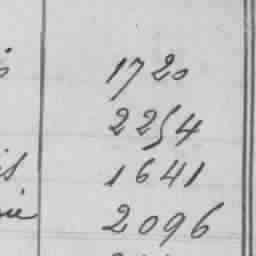 1720
2254
1641
2096